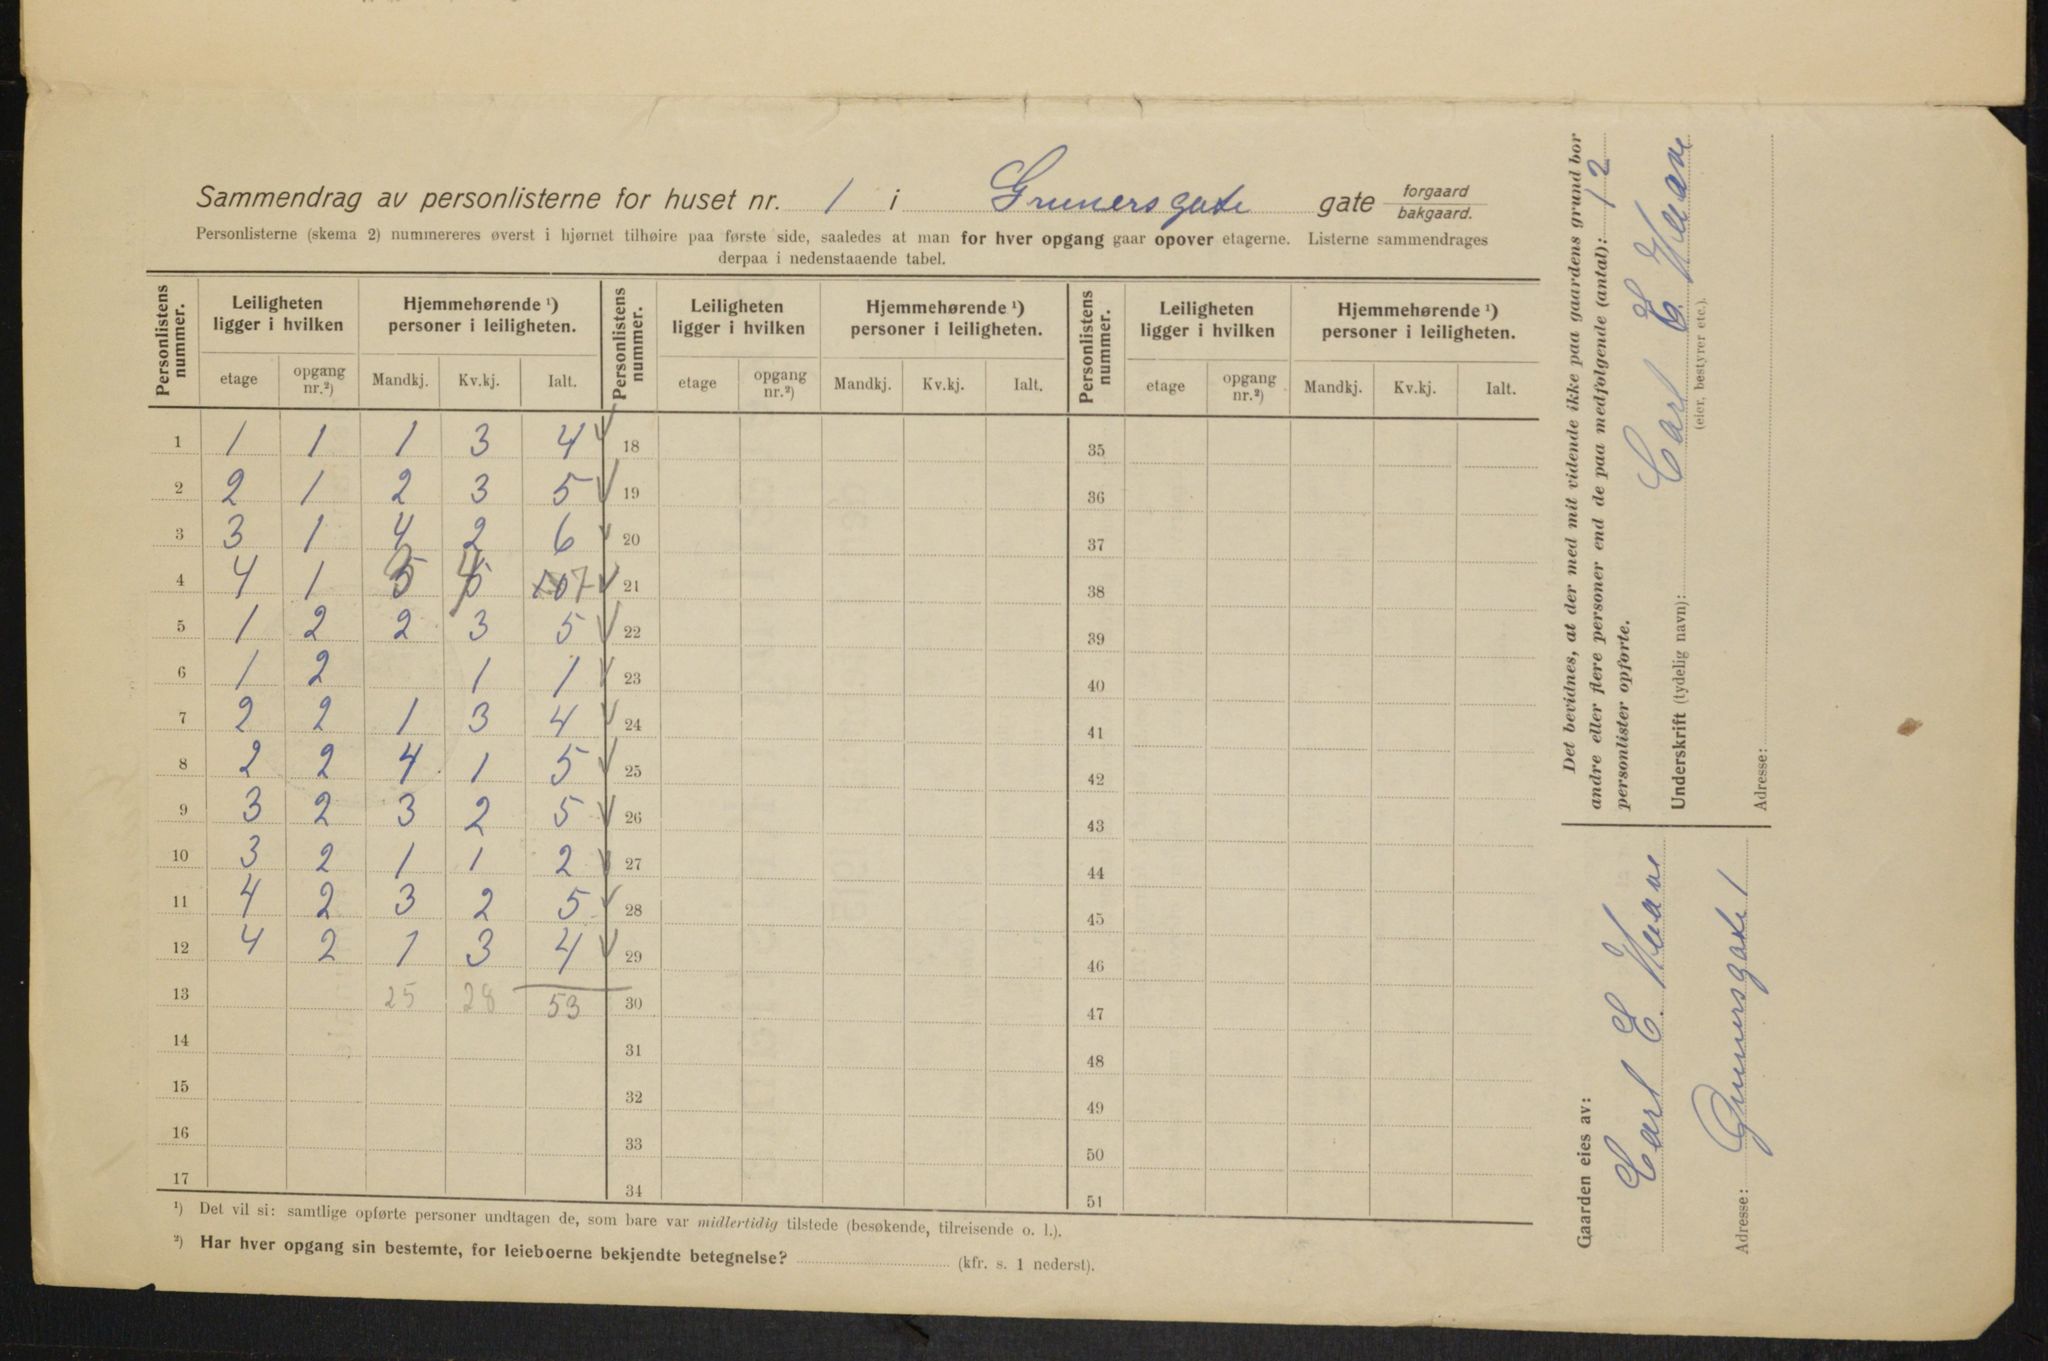 Sammendrag av personlisterne for huset nr. 1 i Grunersgate gate forgaard bakgaard.
Personlisterne (skema 2) nummereres øverst i hjørnet tilhøire paa første side, saaledes at man for hver opgang gaar opover etagerne. Listerne sammendrages
derpaa i nedenstaaende tabel.
Personlistens nummer. Leiligheten ligger i hvilken Hjemmehørende ¹) personer i leiligheten. Personlistens nummer. Leiligheten ligger i hvilken Hjemmehørende ¹) personer i leiligheten. Personlistens nummer. Leiligheten ligger i hvilken Hjemmehørende ¹) personer i leiligheten.
etage opgang nr.²) Mandkj. Kv.kj. Ialt. etage opgang nr.²) Mandkj. Kv.kj. Ialt. etage opgang nr.²) Mandkj. Kv.kj. Ialt.
1 1 1 1 3 4 18 35
2 2 1 2 3 5 19 36
3 3 1 4 2 6 20 37
4 4 1 5 3 5 4 10 7 21 38
5 1 2 2 3 5 22 39
6 1 2 1 1 23 40
7 2 2 1 3 4 24 41
8 2 2 4 1 5 25 42
9 3 2 3 2 5 26 43
10 3 2 1 1 2 27 44
11 4 2 3 2 5 28 45
12 4 2 1 3 4 29 46
13 25 28 53 30 47
14 31 48
15 32 49
16 33 50
17 34 51
¹) Det vil si: samtlige opførte personer undtagen de, som bare var midlertidig tilstede (besøkende, tilreisende o. l.).
²) Har hver opgang sin bestemte, for leieboerne bekjendte betegnelse? (kfr. s. 1 nederst).
Det bevidnes, at der med mit vidende ikke paa gaardens grund bor
andre eller flere personer end de paa medfølgende (antal): 12
personlister opførte.
Underskrift (tydelig navn): Carl E.
(eier, bestyrer etc.).
Adresse:
Gaarden eies av:
Carl E.
Adresse: Grunersgate 1